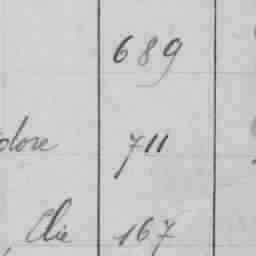 689
dore 711
Elie 167